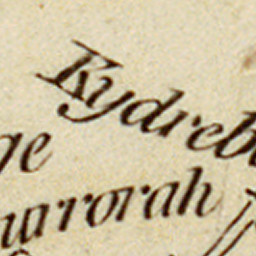 Kydreb
ge
uarorah